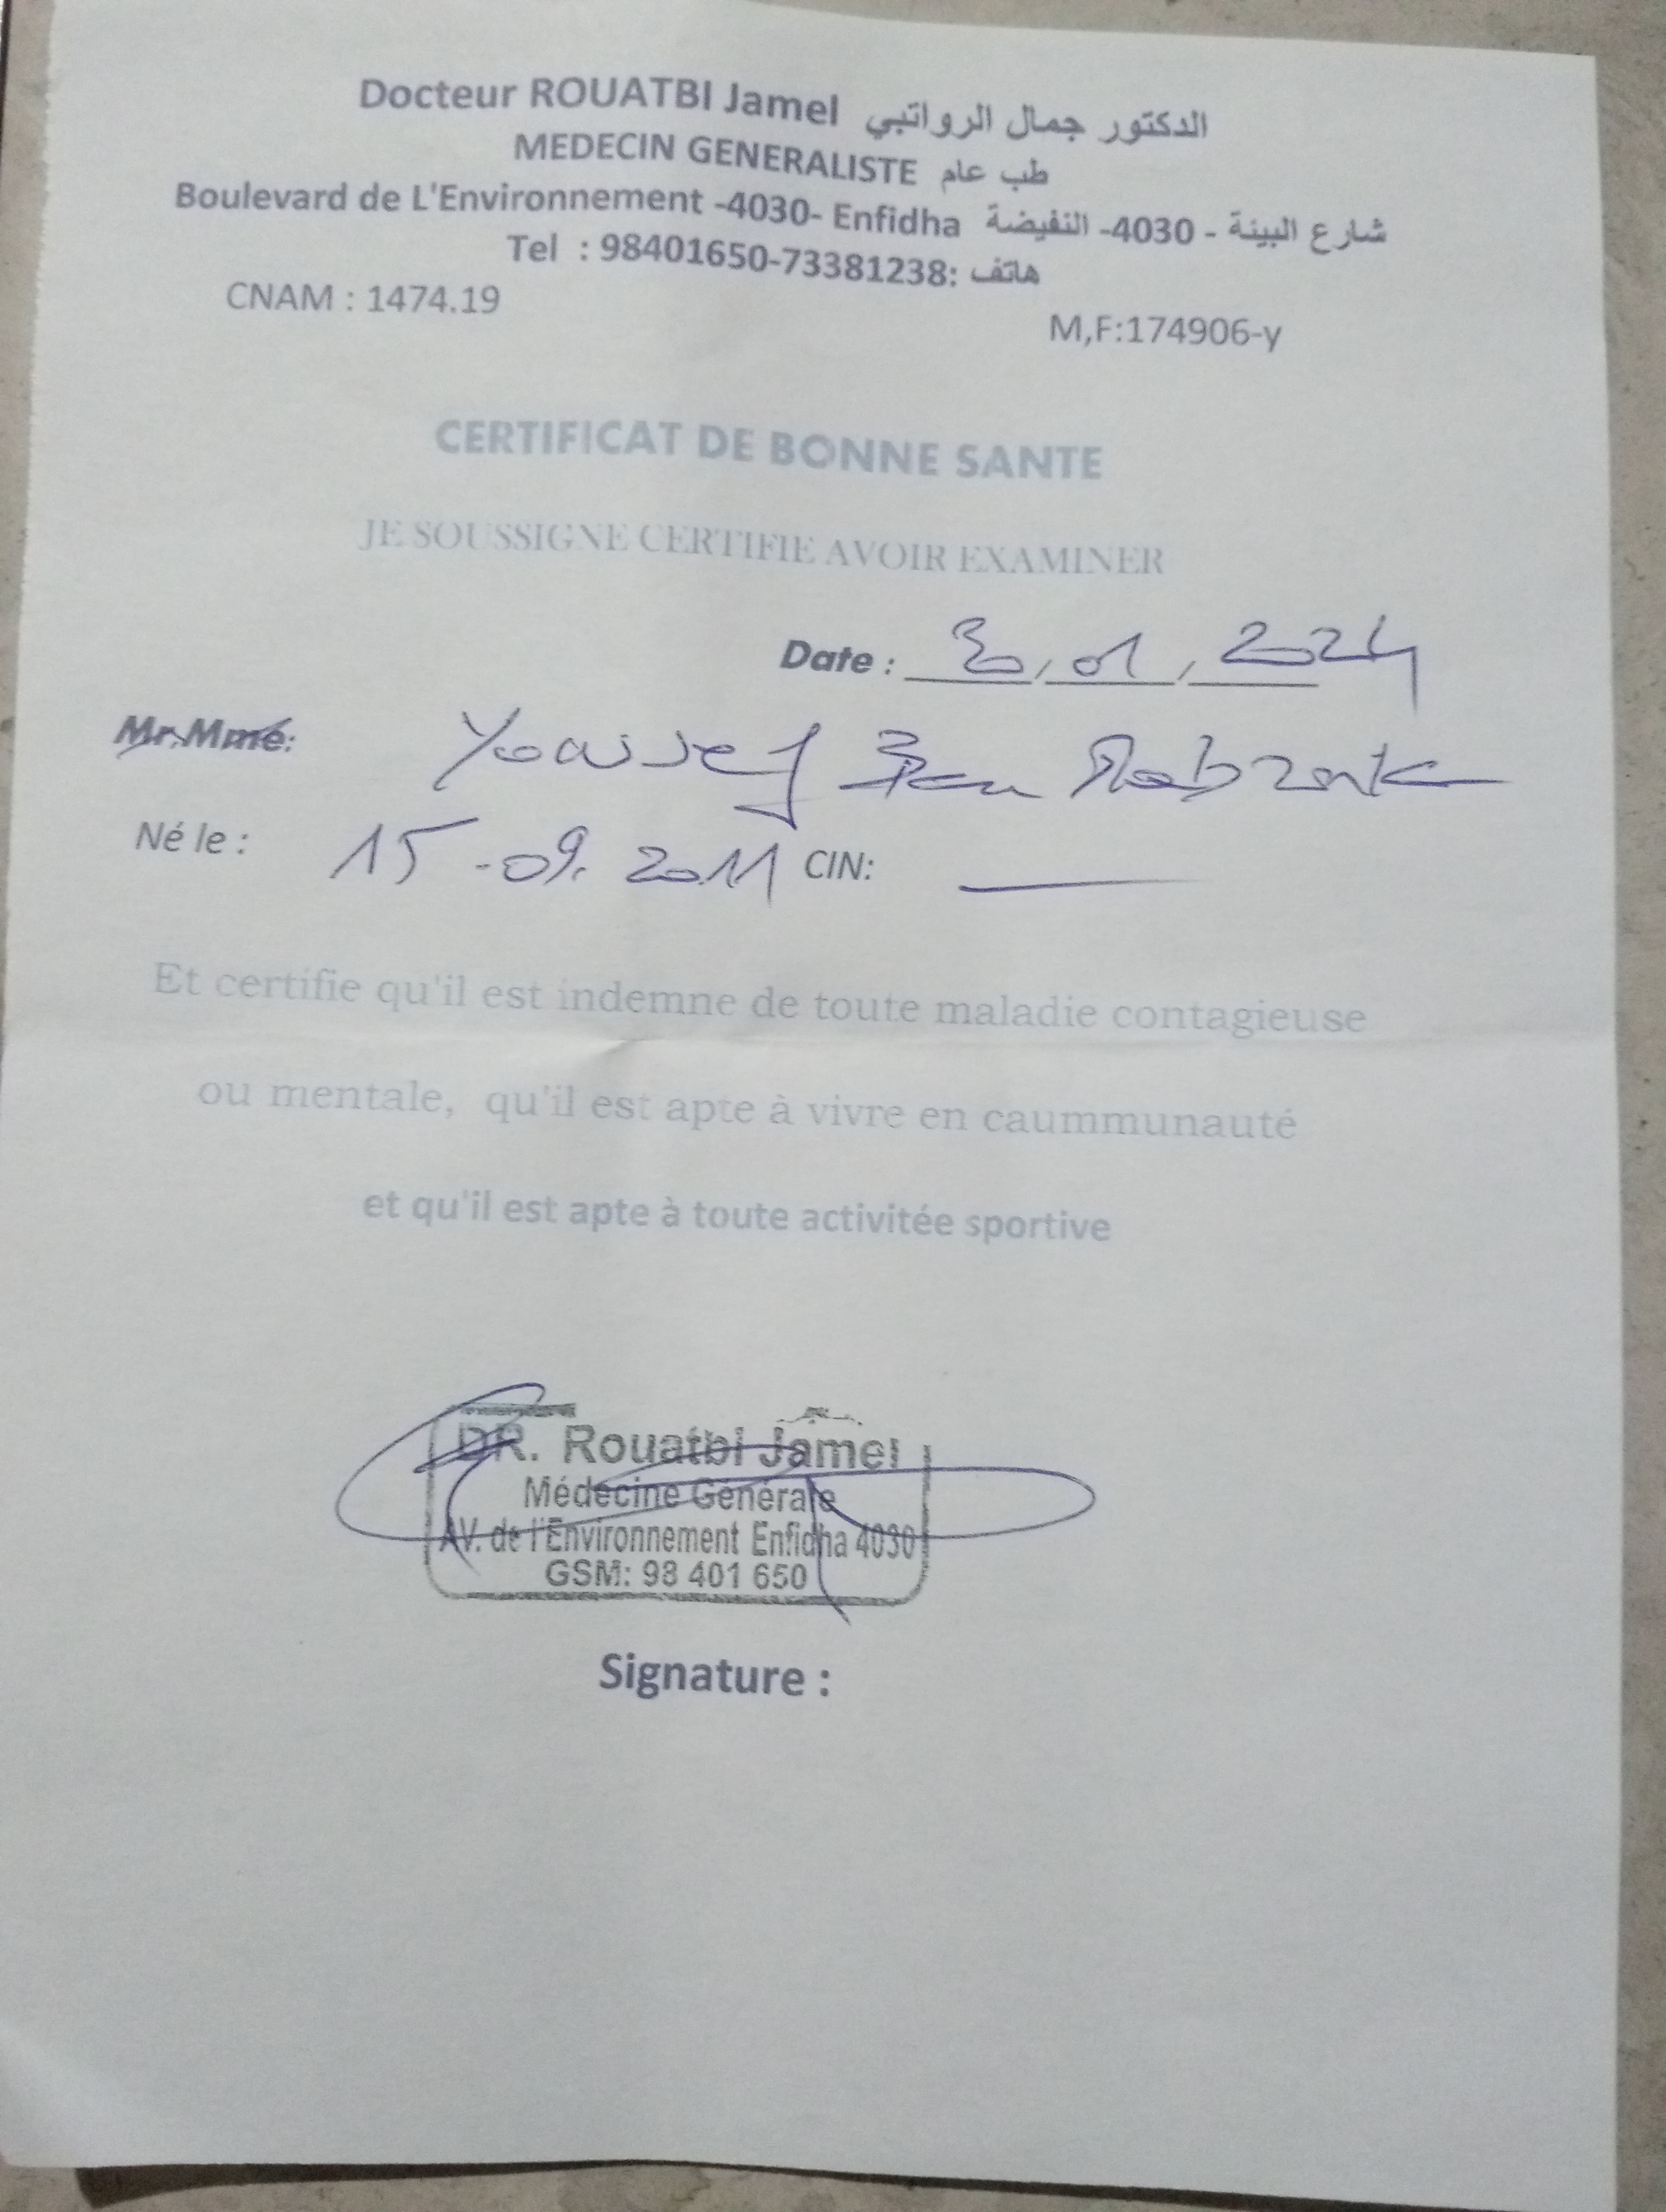 Docteur ROUATBI Jamel الدكتور جمال الرواتبي
MEDECIN GENERALISTE طب عام
Boulevard de L'Environnement -4030- Enfidha شارع البيئة - 4030- النفيضة
Tel : 98401650-73381238: هاتف
CNAM : 1474.19
M,F:174906-y
CERTIFICAT DE BONNE SANTE
JE SOUSSIGNE CERTIFIE AVOIR EXAMINER
Date : 30, 01, 2024
Mr.Mme: Youssef Ben
Né le : 15-09.2011 CIN:
Et certifie qu'il est indemne de toute maladie contagieuse
ou mentale, qu'il est apte à vivre en caummunauté
et qu'il est apte à toute activitée sportive
DR. Rouatbi Jamel
Médecine Générale
AV. de l'Environnement Enfidha 4030
GSM: 98 401 650
Signature :